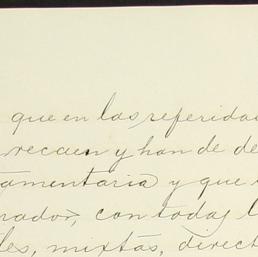 que en las referidas
recaen y han de de
amentaria y que
nador, con todas l
les, mixtas, direct